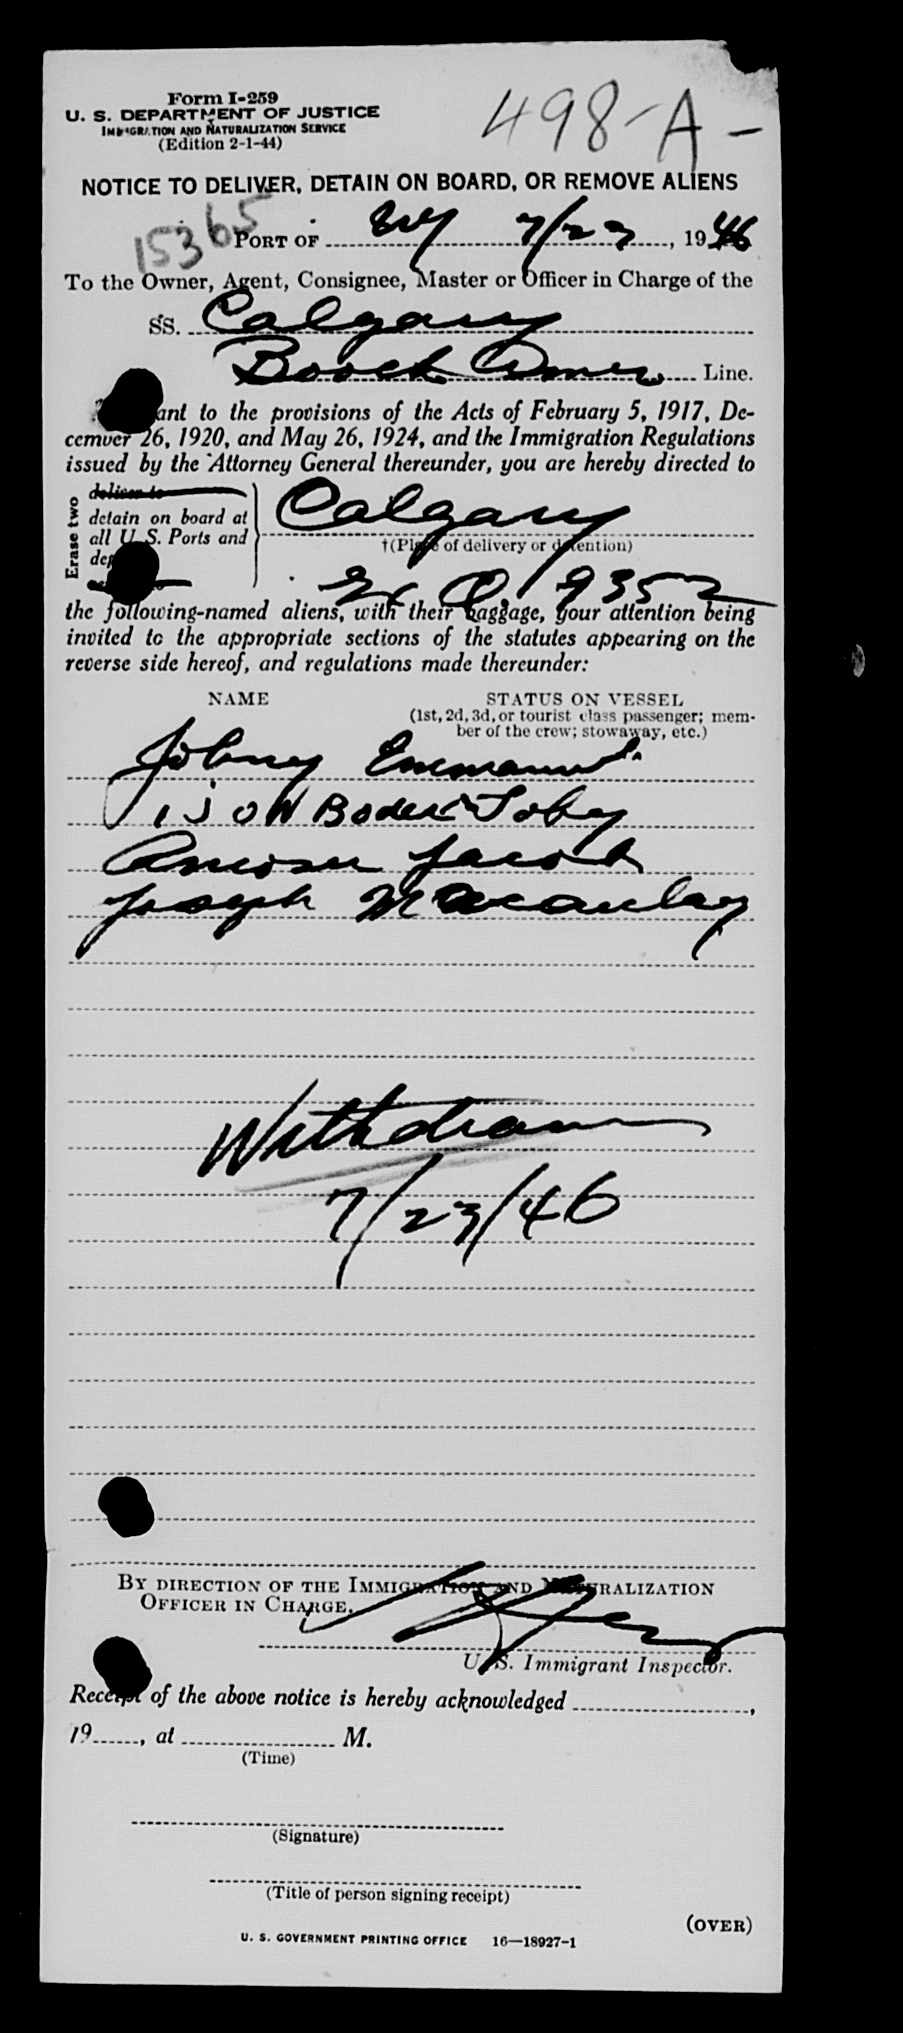 Form I-259
U. S. DEPARTMENT OF JUSTICE
IMMIGRATION AND NATURALIZATION SERVICE
(Edition 2-1-44)
498-A-
NOTICE TO DELIVER, DETAIN ON BOARD, OR REMOVE ALIENS
15365
PORT OF NY 7/23, 1946
To the Owner, Agent, Consignee, Master or Officer in Charge of the
SS. Calgary
Line.
ant to the provisions of the Acts of February 5, 1917, De-
cember 26, 1920, and May 26, 1924, and the Immigration Regulations
issued by the Attorney General thereunder, you are hereby directed to
Erase two
deliver to
detain on board at
all U. S. Ports and
Calgary
†(Place of delivery or detention)
9352
the following-named aliens, with their baggage, your attention being
invited to the appropriate sections of the statutes appearing on the
reverse side hereof, and regulations made thereunder:
NAME STATUS ON VESSEL
(1st, 2d, 3d, or tourist class passenger; mem-
ber of the crew; stowaway, etc.)
Johny Emmanuel
Toby
Jacob
Joseph Macaulay
Withdrawn
7/23/46
BY DIRECTION OF THE IMMIGRATION AND NATURALIZATION
OFFICER IN CHARGE.
U. S. Immigrant Inspector.
Receipt of the above notice is hereby acknowledged ,
19 , at M.
(Time)
(Signature)
(Title of person signing receipt)
(OVER)
U. S. GOVERNMENT PRINTING OFFICE 16—18927-1